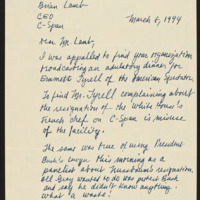 Brian Lamb
CEO
C-Span
March 6, 1994
Dear Mr. Lamb,
I was appalled to find your organization
broadcasting an adulatory dinner for
Emmett Tyrell of the American Spectator.
To find Mr. Tyrell complaining about
the resignation of the White House's
French chef on C-Span is misuse
of the facility.
The same was true of using President
Bush's lawyer this morning as a
panelist about Nussbaum's resignation.
All Gray wanted to do was protect Bush
and say he didn't know anything.
What a waste!